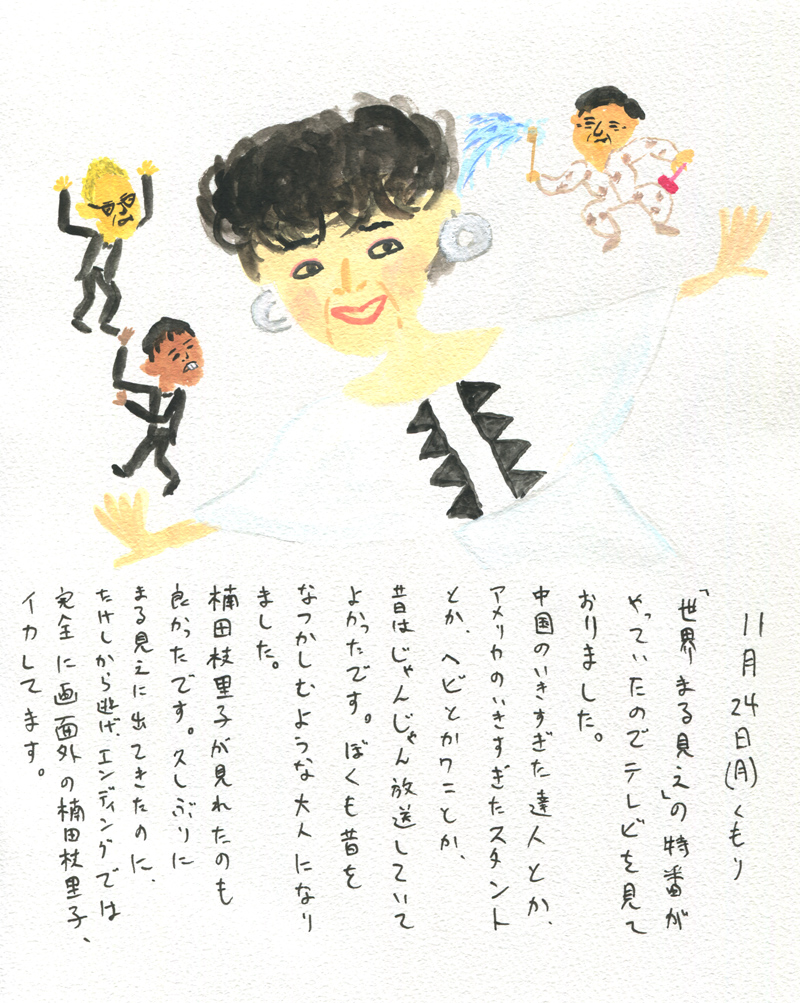 11月24日(月)くもり
「世界まる見え」の特番が
やっていたのでテレビを見て
おりました。
中国のいきすぎた達人とか、
アメリカのいきすぎたスタント
とか、ヘビとかワニとか、
昔はじゃんじゃん放送していて
よかったです。ぼくも昔を
なつかしむような大人になり
ました。
楠田枝里子が見れたのも
良かったです。久しぶりに
まる見えに出てきたのに、
たけしから逃げ、エンディングでは
完全に画面外の楠田枝里子、
イカしてます。